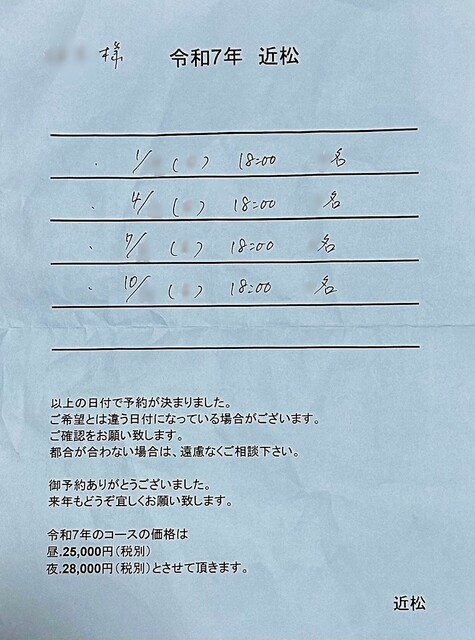 様 令和7年 近松
・ 1/ ( ) 18:00 名
・ 4/ ( ) 18:00 名
・ 7/ ( ) 18:00 名
・ 10/ ( ) 18:00 名
以上の日付で予約が決まりました。
ご希望とは違う日付になっている場合がございます。
ご確認をお願い致します。
都合が合わない場合は、遠慮なくご相談下さい。
御予約ありがとうございました。
来年もどうぞ宜しくお願い致します。
令和7年のコースの価格は
昼.25,000円(税別)
夜.28,000円(税別)とさせて頂きます。
近松